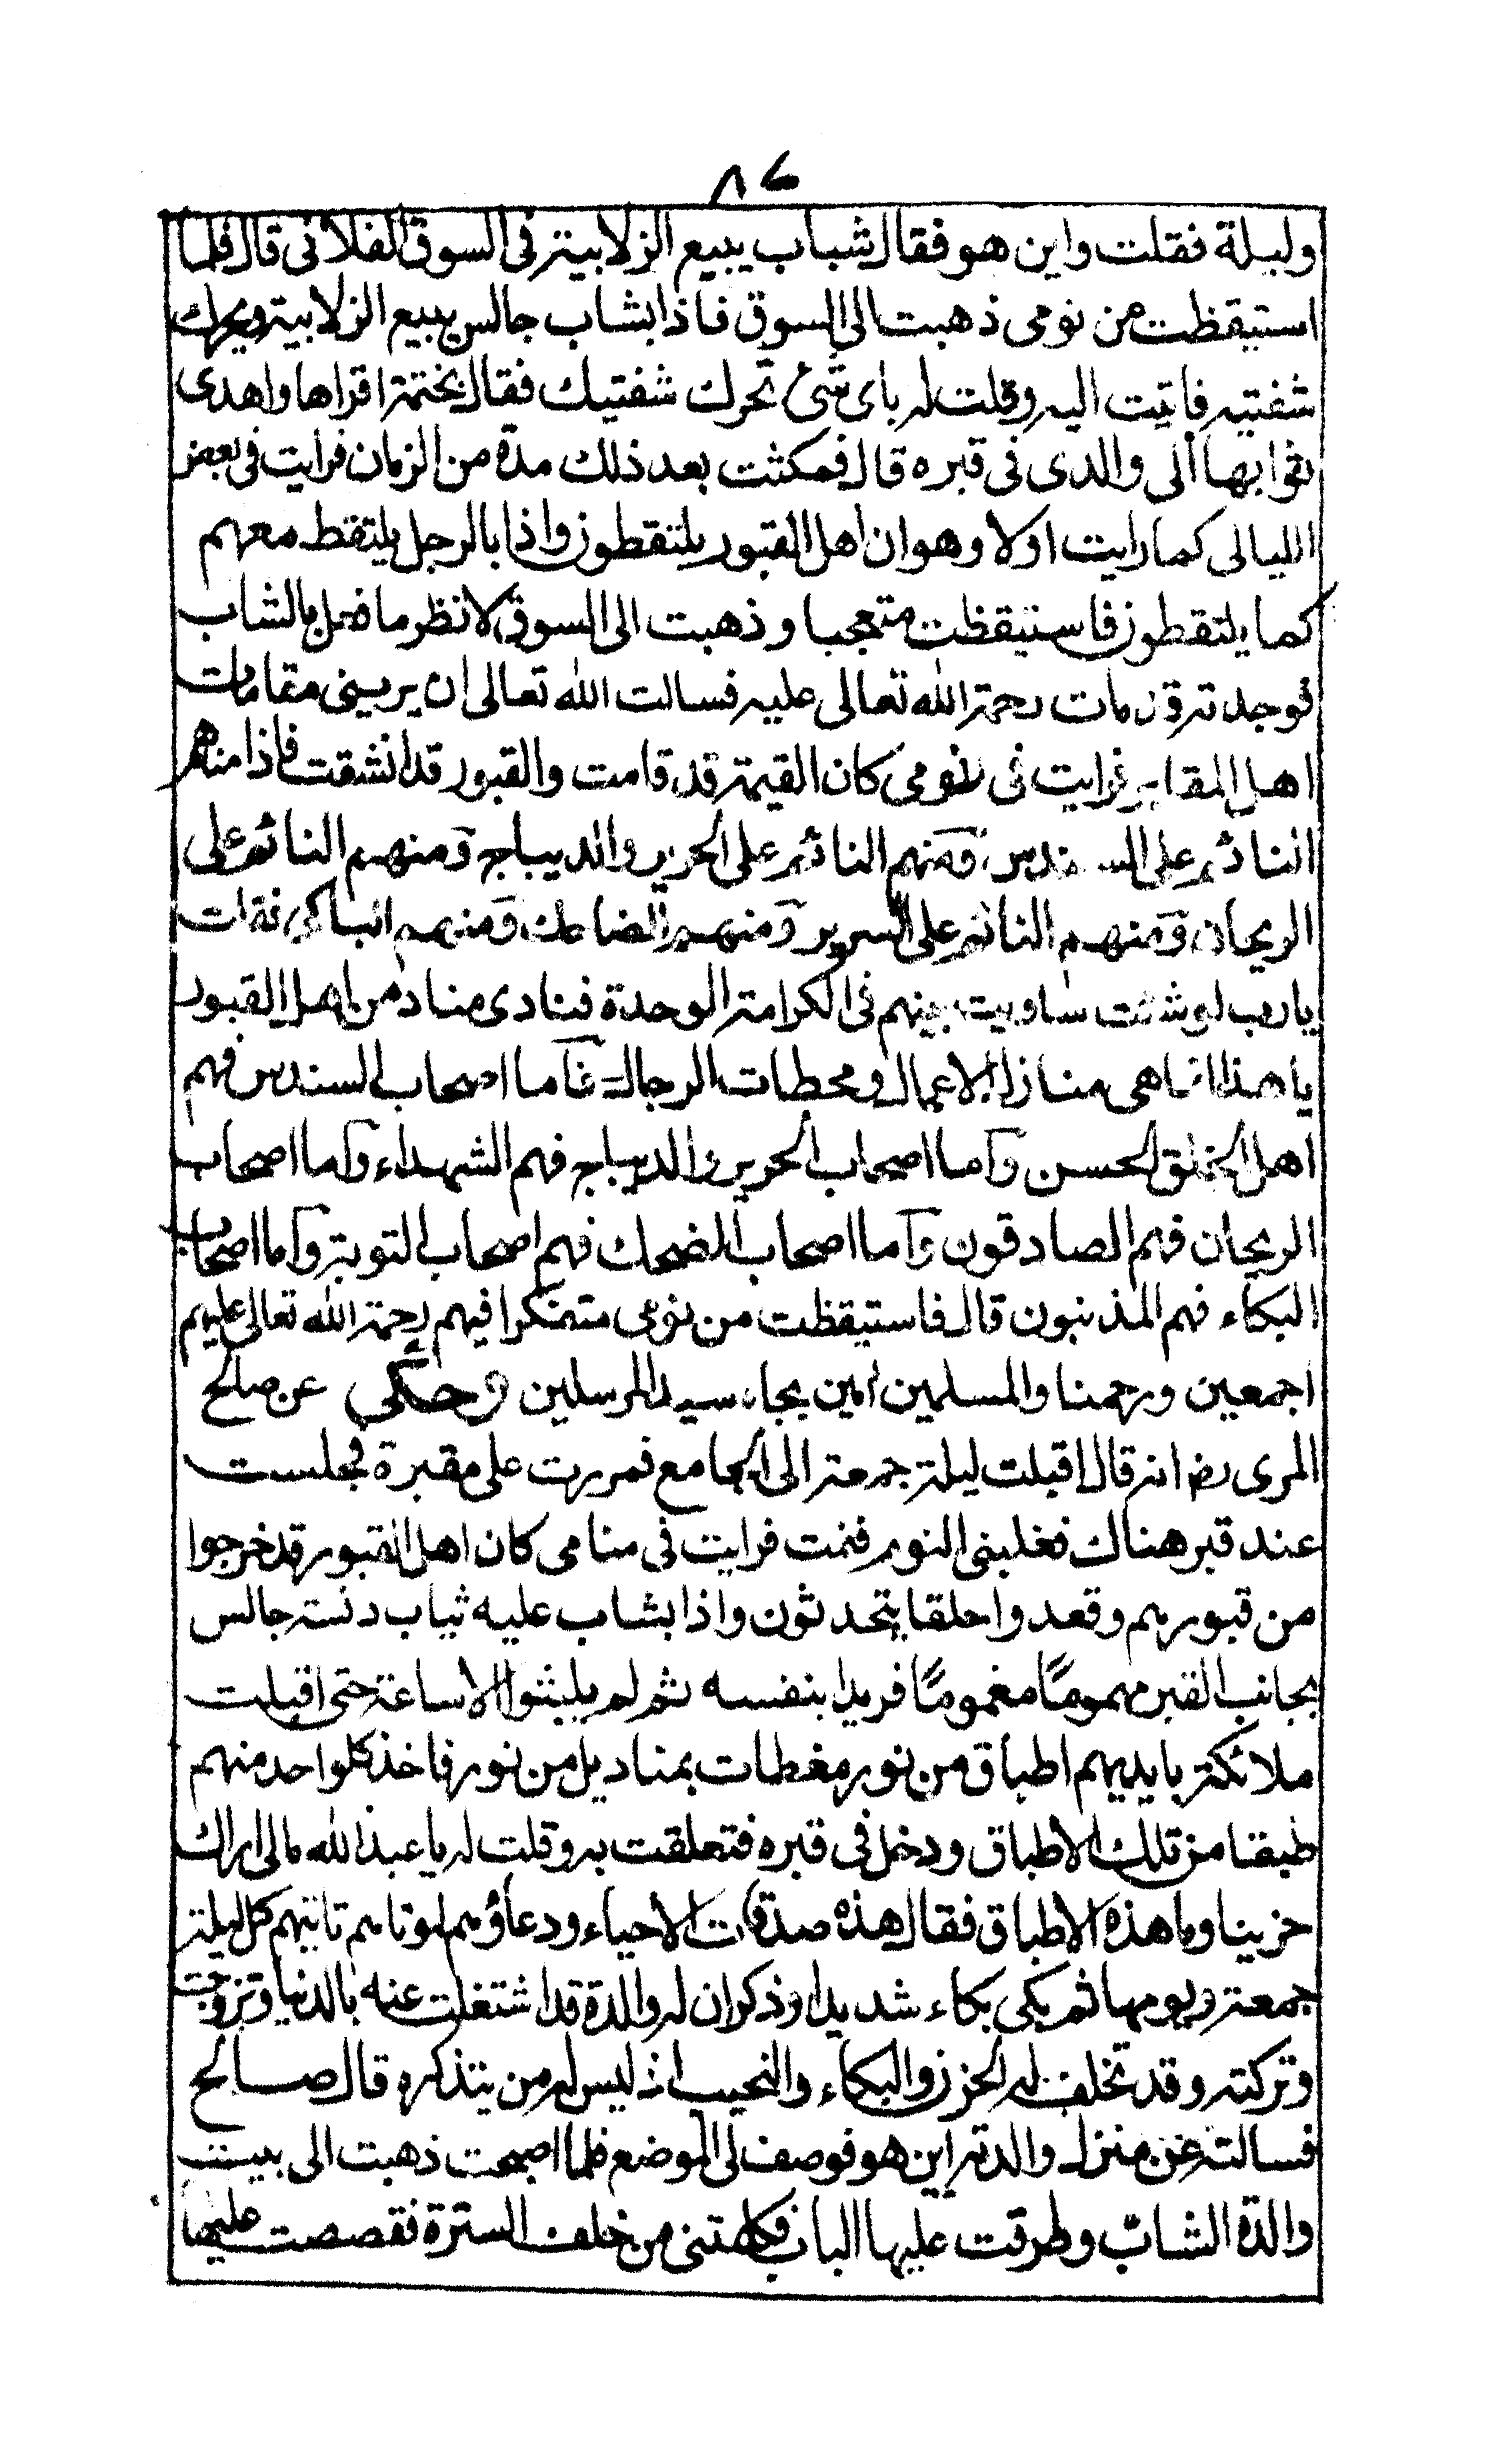 ٨٤
وليلة فقلت واين هو فقال شباب يبيع الزلابية في السوق الفلاني قال فلما
استيقظت من نومي ذهبت الى السوق فاذا بشاب جالس يبيع الزلابية ويحرك
شفتيه فاتيت اليه وقلت له باى شئ تحرك شفتيك فقال بختمة اقراها واهدى
ثوابها الى والدى في قبره قال فمكثت بعد ذلك مدة من الزمان فرايت في بعض
الليالى كما رايت اولا وهو ان اهل القبور يلتقطون واذا بالرجل يلتقط معهم
كما يلتقطون فاستيقظت متعجبا وذهبت الى السوق لانظر ما فعل بالشاب
فوجدته قد مات رحمة الله تعالى عليه فسالت الله تعالى ان يريني مقامات
اهل المقابر فرايت في نومي كان القيمة قد قامت والقبور قد انشقت فاذا منهم
النائم على السندس ومنهم النائم على الحرير والديباج ومنهم النائم على
الريحان ومنهم النائم على السرير ومنهم الضاحك ومنهم الباكي فقلت
يارب لو شئت ساويت بينهم في الكرامة الوحدة فنادى مناد من اهل القبور
يا هذا انما هى منازل الاعمال ومحطات الرجال فاما اصحاب السندس فهم
اهل الخلق الحسن واما اصحاب الحرير والديباج فهم الشهداء واما اصحاب
الريحان فهم الصادقون واما اصحاب الضحك فهم اصحاب التوبة واما اصحاب
البكاء فهم المذنبون قال فاستيقظت من نومى متفكرا فيهم رحمة الله تعالى عليهم
اجمعين ورحمنا والمسلمين امين بجاه سيد المرسلين وحكي عن صالح
المرى رض انه قال اقبلت ليلة جمعة الى الجامع فمررت على مقبرة فجلست
عند قبر هناك فغلبنى النوم فنمت فرايت في منامى كان اهل القبور قد خرجوا
من قبورهم وقعدوا حلقا يتحدثون واذا بشاب عليه ثياب دنسة جالس
بجانب القبر مهموماً مغموماً فريدا بنفسه ثم لم يلبثوا الا ساعة حتى اقبلت
ملائكة بايديهم اطباق من نور مغطات بمناديل من نور فاخذ كلواحد منهم
طبقا من تلك الاطباق ودخل في قبره فتعلقت به وقلت له يا عبد الله مالى اراك
حزينا وما هذه الاطباق فقال هذه صدقات الاحياء ودعاؤهم لموتاهم تاتيهم كل ليلة
جمعة ويومها ثم بكى بكاء شديدا وذكر ان له والدة قد اشتغلت عنه بالدنيا وتزوجت
وتركته وقد تخلف له الحزن والبكاء والنحيب اذ ليس له من يتذكره قال صالح
فسالته عن منزل والدته اين هو فوصف لى الموضع فلما اصبحت ذهبت الى بيت
والدة الشابّ وطرقت عليها الباب فكلمتنى من خلف السترة فقصصت عليها